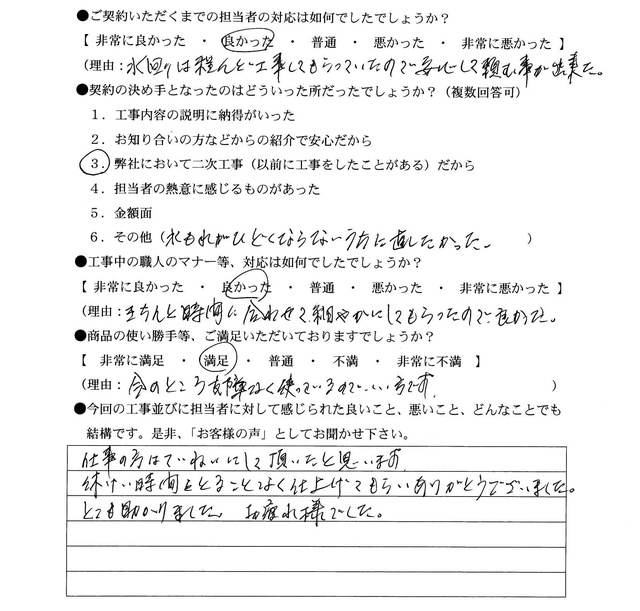 ●ご契約いただくまでの担当者の対応は如何でしたでしょうか？
【 非常に良かった ・ 良かった ・ 普通 ・ 悪かった ・ 非常に悪かった 】
(理由：水回りは殆んど工事してもらっていたので安心して頼む事が出来た。
●契約の決め手となったのはどういった所だったでしょうか？（複数回答可）
１．工事内容の説明に納得がいった
２．お知り合いの方などからの紹介で安心だから
３．弊社において二次工事（以前に工事をしたことがある）だから
４．担当者の熱意に感じるものがあった
５．金額面
６．その他（水もれがひどくならないうちに直したかった。）
●工事中の職人のマナー等、対応は如何でしたでしょうか？
【 非常に良かった ・ 良かった ・ 普通 ・ 悪かった ・ 非常に悪かった 】
(理由：きちんと時間に合わせて細やかにしてもらったので良かった。
●商品の使い勝手等、ご満足いただいておりますでしょうか？
【 非常に満足 ・ 満足 ・ 普通 ・ 不満 ・ 非常に不満 】
(理由：今のところ支障なく使っているのでいい方です )
●今回の工事並びに担当者に対して感じられた良いこと、悪いこと、どんなことでも
結構です。是非、「お客様の声」としてお聞かせ下さい。
仕事の方はていねいにして頂いたと思います
休けい時間をとることなく仕上げてもらいありがとうございました。
とても助かりました。お疲れ様でした。